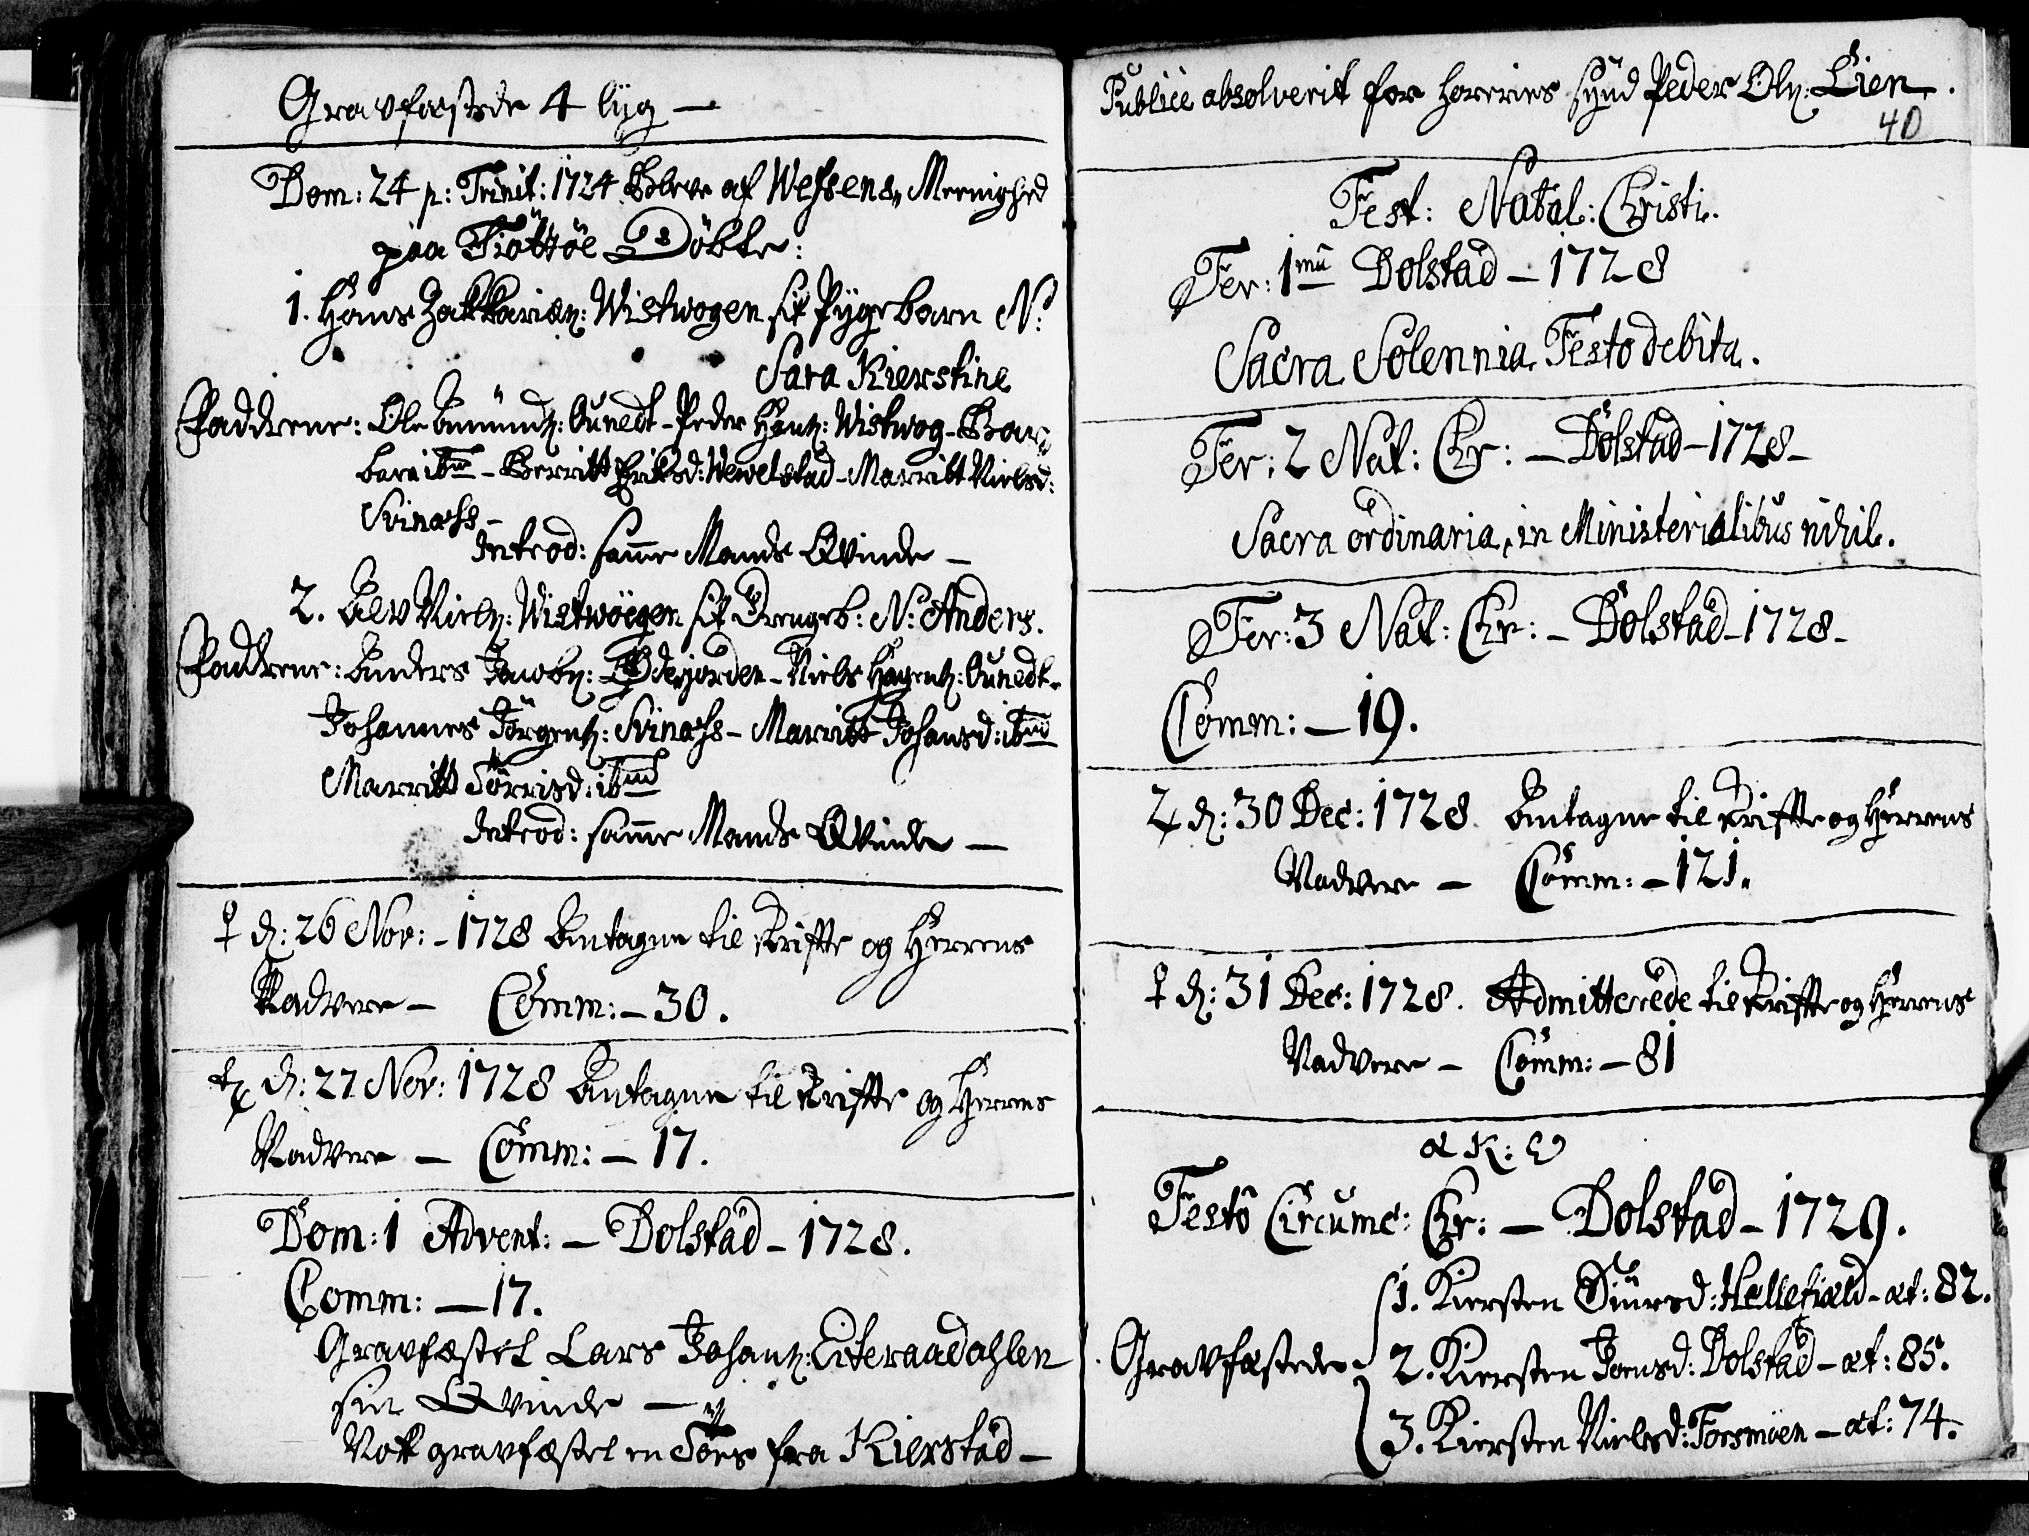 Gravfæstede 4 lijg –
Dom: 24 p: Trinit: 1724 bleve af Wefsens Meenighed
paa Tiøttøe Döbte:
1. Hans Zakkariæs: Wistwogen sit Pigebarn N:
Sara Kierstine
Faddrene: Ole Amunds: Aunedt - Peder Hans: Wistwog - Bar
bara ibm - Berritt Eriksd: Wewelstad - Marritt Nielsd:
Svinæss -
Introd: samme Mands Qvinde –
2. Niels: Wistwögen sit Drengeb: N: Anders.
Faddrene: Anders Jacobs: Ödejorden - Niels Hagens: Aunedt -
Johannes Jörgens: Svinæss - Marritt Johansd: ibm
Marritt Törrisd: ibm
Introd: samme Mands Qvinde –
♀ d: 26 Nov: - 1728 Antagne til skrifte og Herrens
Nadvere – Comm: – 30.
♄ d: 27 Nov: 1728 Antagne til skrifte og Herrens
Nadvere – Comm: – 17.
Dom: 1 Advent: – Dolstad – 1728.
Comm: – 17.
Gravfæstet Lars Johans: Eiteraadahlen
sin Qvinde –
Nok gravfæstet en fra Kierstad –
Publice absolverit for horeries synd Peder Ols: Lien.
40
Fest: Natal: Christi.
Fer: 1mu Dolstad – 1728
Sacra Solennia Festo debita.
Fer: 2 Nat: Chr: – Dolstad – 1728 –
Sacra ordinaria, in Ministerialibus nihil.
Fer: 3 Nat: Chr: – Dolstad – 1728 –
Comm: – 19.
♃ d: 30 Dec: 1728 Antagne til skrifte og Herrens
Nadvere – Comm: – 121.
♀ d: 31 Dec: 1728. Admitterede til skrifte og Herrens
Nadvere – Comm: – 81
α κ: ω
Festo Circumc: Chr: – Dolstad – 1729.
1. Kiersten Siursd: Hellefiæld – æt: 82.
Gravfæstede 2. Kiersten Jonsd: Dolstad – æt: 85.
3. Kiersten Nielsd: Forsmoen – æt: 74.